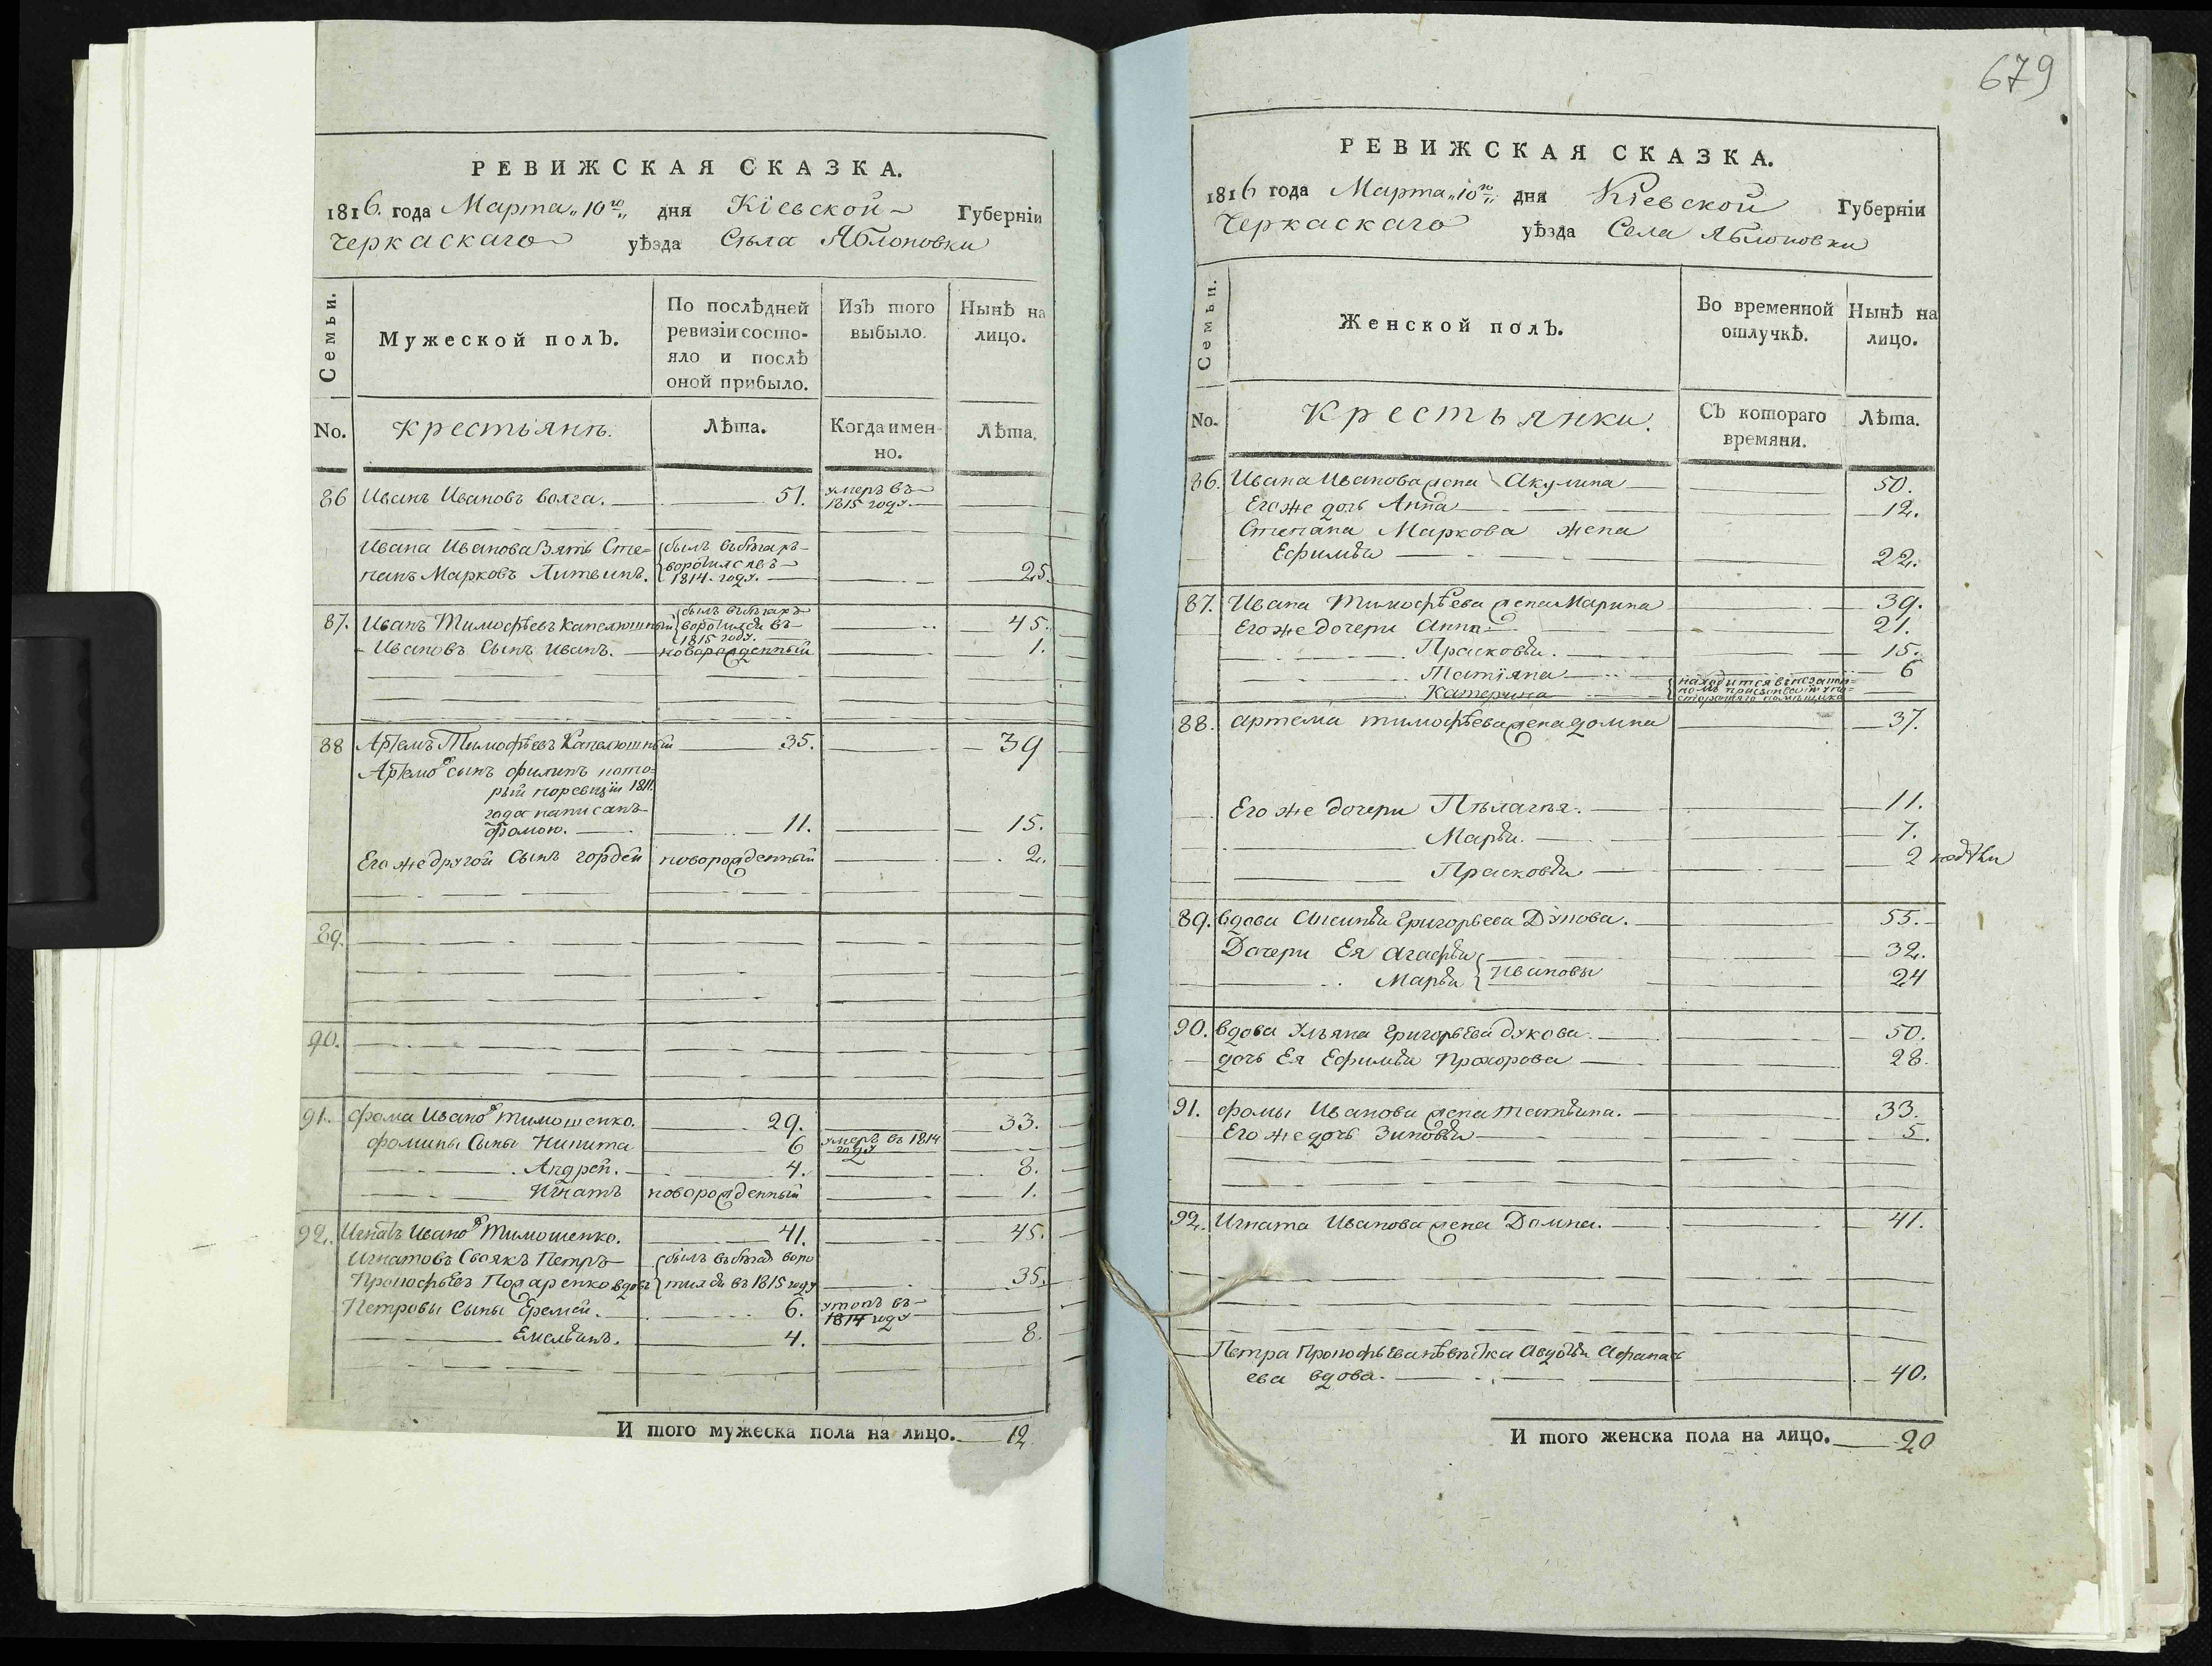 РЕВИЖСКАЯ СКАЗКА.
1816. года Марта „10го„ дня Кіевской Губерніи
Черкаскаго уѣзда Сѣла Яблоновки
Семьи.
Мужеской полЪ.
По послѣдней ревизіи состояло и послѣ оной прибыло.
ИзЪ того выбыло.
Нынѣ на лицо.
No. Крестьянъ. Лѣта. Когда имен-
но. Лѣта.
86 Иванъ Ивановъ Волга. 51. умеръ въ
1815 году.
Ивана Иванова Зять Сте- былъ въ бѣгахъ
панъ Марковъ Литвинъ. воротился въ 1814. году. 25.
87. Иванъ Тимофѣевъ Капелюшный былъ въ бѣгахъ воротился въ 1815 году. 45.
Ивановъ Сынъ Иванъ. новорожденный 1.
88 Артемъ Тимофѣевъ Капелюшный 35. 39
Артемов сынъ Филипъ кото-
рый по ревизіи 1811.
года написанъ
Фомою. 11. 15.
Его же другой Сынъ Гордѣй новорожденный 2.
89.
90.
91. Фома Иванов Тимошенко. 29. 33.
Фомины Сыны Никита 6 умеръ въ 1814
году
Андрей. 4. 8.
Игнатъ новорожденный 1.
92. Игнатъ Иванов Тимошенко. 41. 45.
Игнатовъ Своякъ Петръ былъ въ бѣгах воро
Прокофьевъ вдовъ тился въ 1815 году 35.
Петровы Сыны Еремей. 6. утопъ въ
1814 году
Емельянъ. 4. 8.
И того мужеска пола на лицо. 12
679
РЕВИЖСКАЯ СКАЗКА.
1816 года Марта „10го„ дня Кіевской Губерніи
Черкаскаго уѣзда Села Яблоновки
Семьи.
Женской полЪ.
Во временной отлучкѣ.
Нынѣ на лицо.
No. Крестьянки. СЪ котораго
времяни. Лѣта.
86. Ивана Иванова жена Акулина 50.
Его же дочь Анна 12.
Степана Маркова жена
Ефимья 22.
87. Ивана Тимофѣева жена Марина 39.
Его же дочери Анна 21.
Прасковья. 15.
Татіяна 6
Катерина находится в
88. Артема Тимофѣева жена Домна 37.
Его же дочери Пѣлагѣя. 11.
Марья. 7.
Прасковья 2
89. Вдова Григорьева Дукова. 55.
Дочери Ея Агафья 32.
Марья Ивановы 24
90. Вдова Ульяна Григорьева Дукова. 50.
дочь Ея Ефимья Прохорова 28.
91. Фомы Иванова жена Татьяна. 33.
Его же дочь Зиновья 5.
92. Игната Иванова жена Домна. 41.
Пѣтра Прокофьева Авдотья Афанась
ева вдова. 40.
И того женска пола на лицо. 20